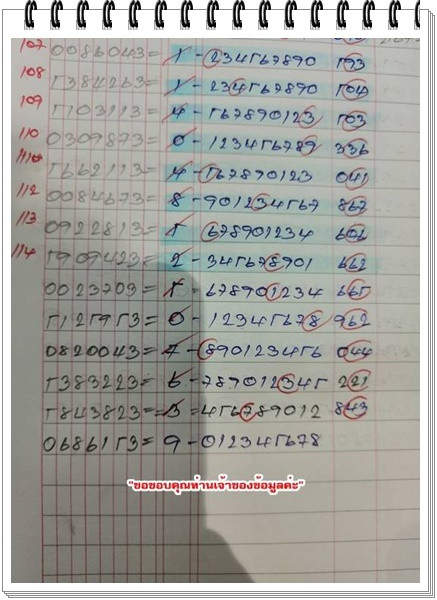 107 0086043= 1 - 234567890 593
108 5384263= 1 - 234567890 504
109 5103113= 4 - 567890123 503
110 0309873= 0 - 123456789 336
5662113= 4 - 567890123 041
112 0084673= 8 - 901234567 867
113 0922813= 5 - 678901234 606
114 5909423= 2 - 345678901 662
0023703= 5 - 678901234 665
5125953= 0 - 12345678 962
0820043= 7 - 890123456 044
5383223= 6 - 789012345 221
5843823= 3 = 456789012 843
0686153= 9 - 012345678
"ขอขอบคุณท่านเจ้าของข้อมูลค่ะ"